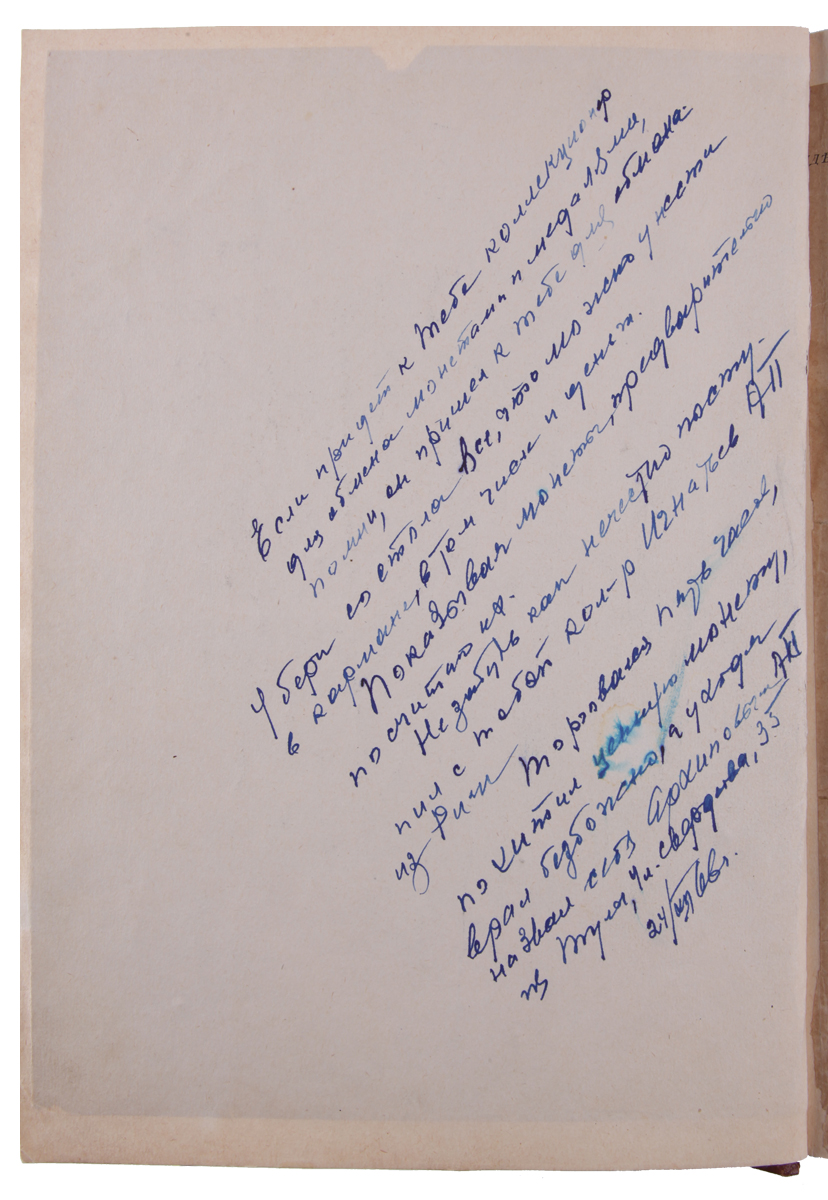 Если придет к тебе коллекционер
для обмена монетами и медалями,
помни, он пришел к тебе для обмана.
Убери со стола все, что можно унести
в кармане, в том числе и деньги.
Показывая монеты, предварительно
посчитай их.
Не забудь как нечестно посту-
пил с тобой кол-р Игнатьев АП
из Риги. Торговался пять часов,
похитил ценную монету,
врал безбожно, а уходя
назвал себя Архиповым АП
из Тулы, ул. Свободы, 33
24/XII 66г.